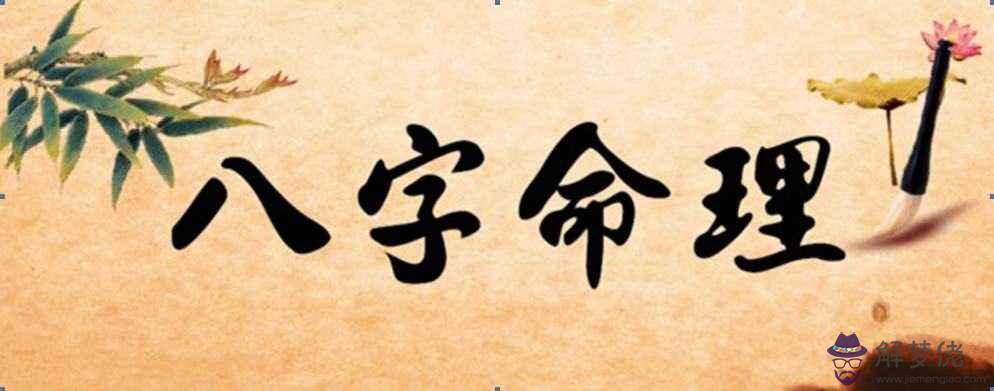 八字命理
解梦佬
www.jiemenglao.com